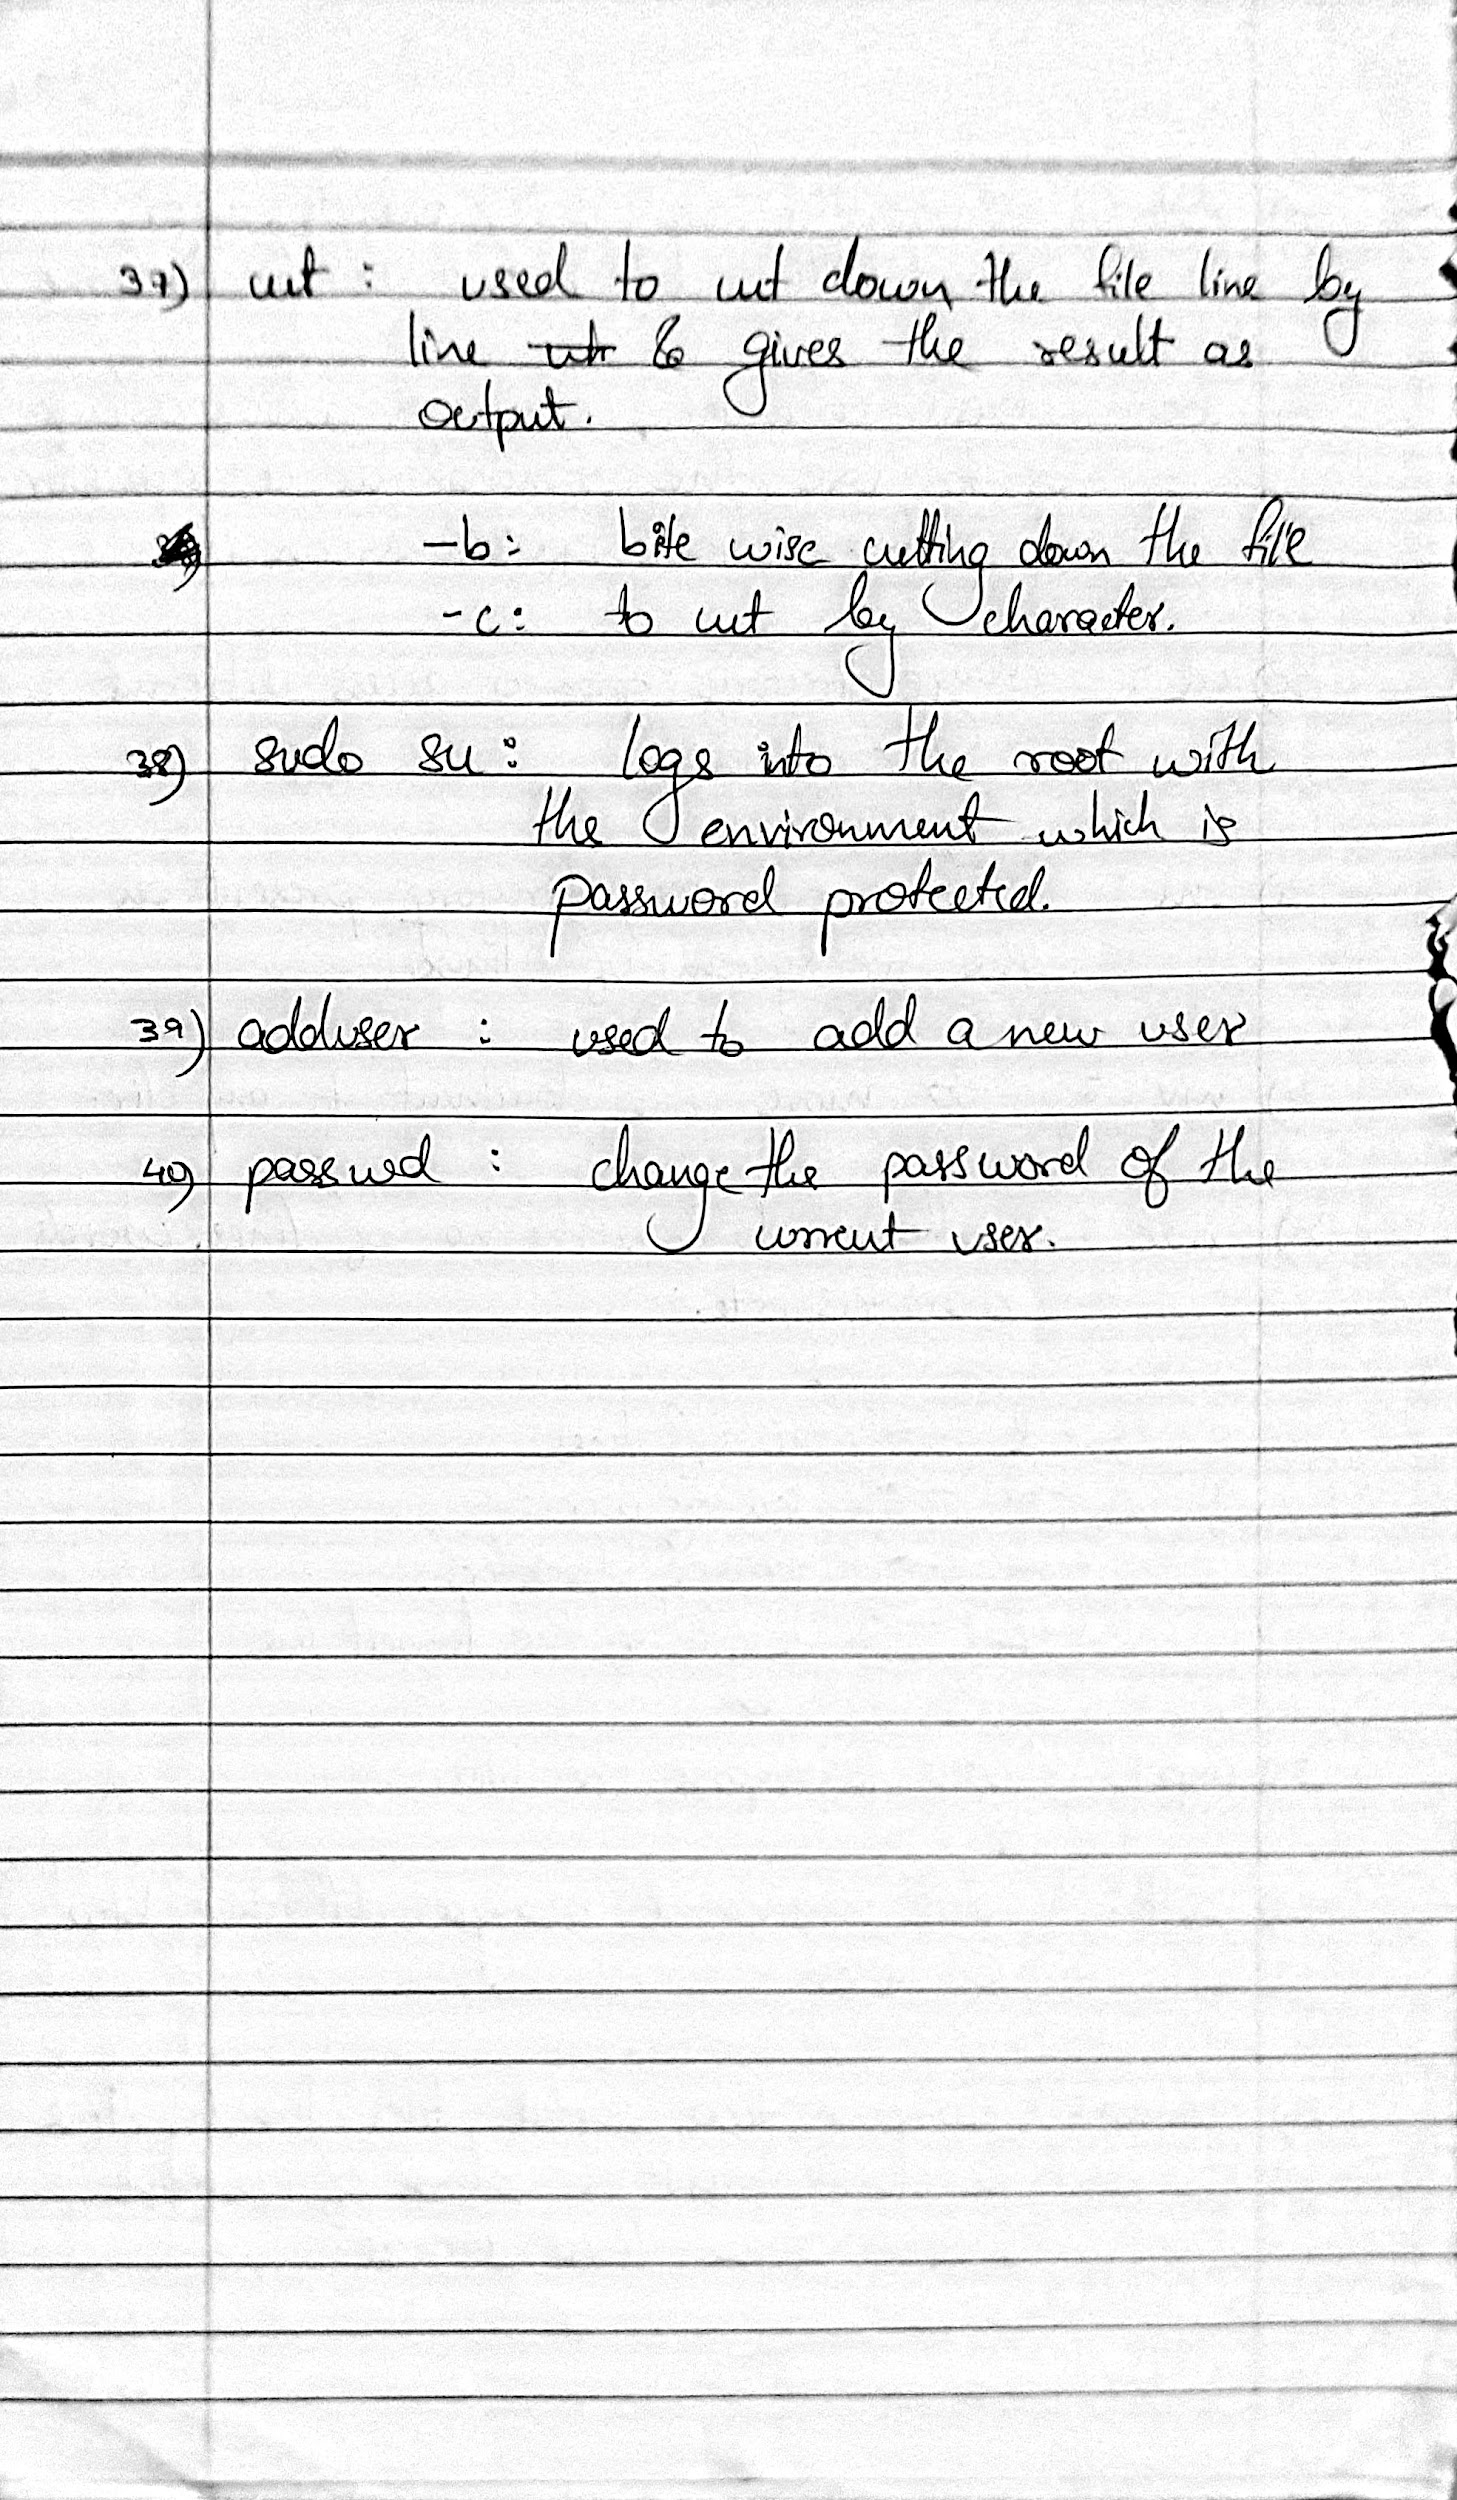 37) cut : used to cut down the file line by
line & gives the result as
output.
-b: bite wise cutting down the file
-c: to cut by character.
38) sudo su: logs into the root with
the environment which is
password protected.
39) adduser : used to add a new user
40) passwd : change the password of the
current user.